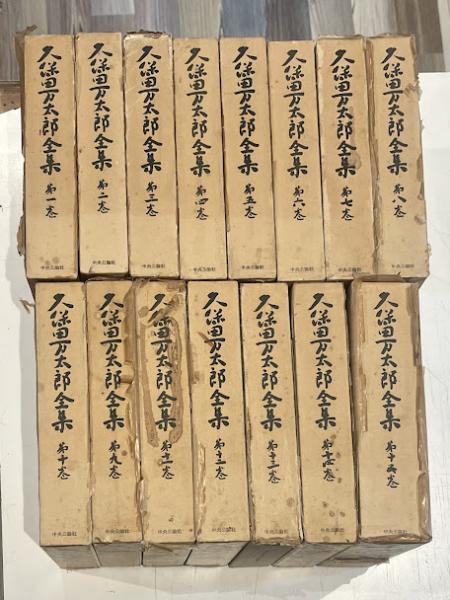 久保田万太郎全集 第一巻 中央公論社
久保田万太郎全集 第二巻 中央公論社
久保田万太郎全集 第三巻 中央公論社
久保田万太郎全集 第四巻 中央公論社
久保田万太郎全集 第五巻 中央公論社
久保田万太郎全集 第六巻 中央公論社
久保田万太郎全集 第七巻 中央公論社
久保田万太郎全集 第八巻 中央公論社
久保田万太郎全集 第十巻 中央公論社
久保田万太郎全集 第九巻 中央公論社
久保田万太郎全集 第十一巻 中央公論社
久保田万太郎全集 第十二巻 中央公論社
久保田万太郎全集 第十三巻 中央公論社
久保田万太郎全集 第十四巻 中央公論社
久保田万太郎全集 第十五巻 中央公論社